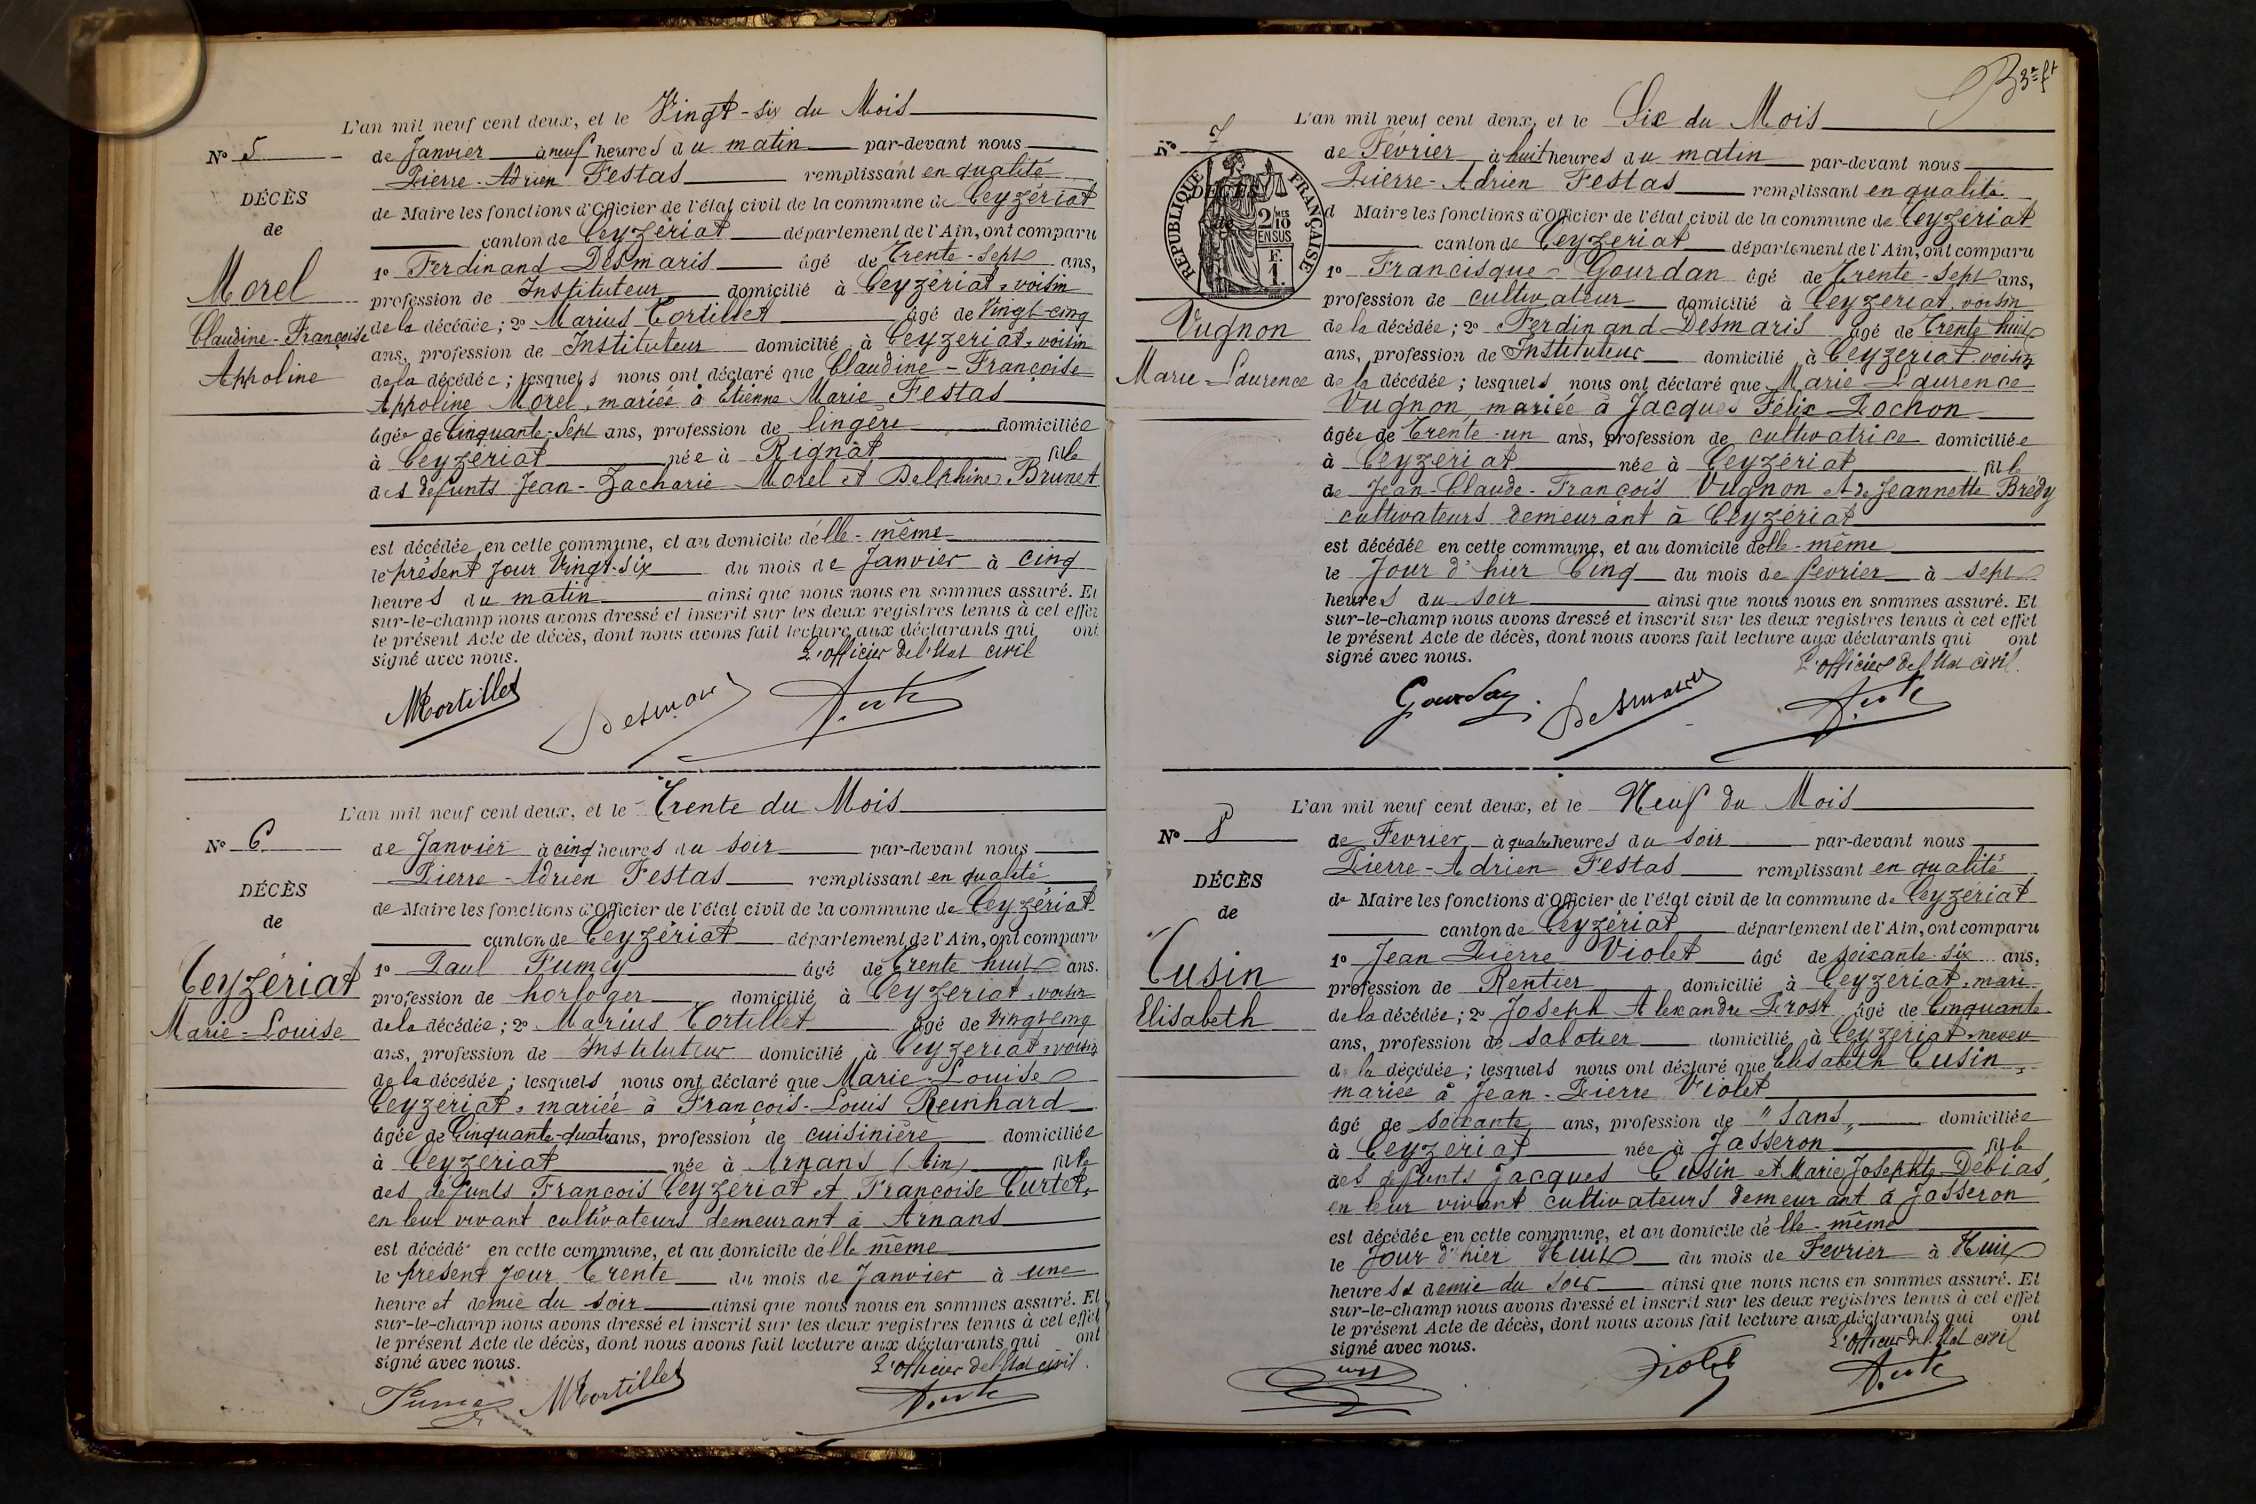 L'an mil neuf cent deux, et le Vingt-six du Mois
N° 5
de Janvier à neuf heures du matin par-devant nous
Pierre-Adrien Festas remplissant en qualité
DÉCÈS
de Maire les fonctions d'Officier de l'état civil de la commune de Ceyzériat
de
canton de Ceyzériat département de l'Ain, ont comparu
1° Ferdinand Desmaris âgé de Trente-sept ans,
Morel
profession de Instituteur domicilié à Ceyzériat, voisin
Claudine-Françoise
de la décédée; 2° Marius Tortillet âgé de Vingt-cinq
ans, profession de Instituteur domicilié à Ceyzériat, voisin
Appoline
de la décédée; lesquels nous ont déclaré que Claudine-Françoise
Appoline Morel, mariée à Etienne Marie Festas
âgée de Cinquante-sept ans, profession de lingère domiciliée
à Ceyzériat née à Rignat fille
des defunts Jean-Zacharie Morel et Delphine Brunet
est décédée en cette commune, et au domicile d'elle-même
le présent jour Vingt-six du mois de Janvier à cinq
heures du matin ainsi que nous nous en sommes assuré. Et
sur-le-champ nous avons dressé et inscrit sur les deux registres tenus à cet effet
le présent Acte de décès, dont nous avons fait lecture aux déclarants qui ont
signé avec nous. L'officier de l'état civil
MTortillet Desmaris
L'an mil neuf cent deux, et le Trente du Mois
N° 6
de Janvier à cinq heures du soir par-devant nous
Pierre-Adrien Festas remplissant en qualité
DÉCÈS
de Maire les fonctions d'Officier de l'état civil de la commune de Ceyzériat
de
canton de Ceyzériat département de l'Ain, ont comparu
Ceyzériat
1° Paul Fumey âgé de Trente huit ans.
profession de horloger domicilié à Ceyzériat, voisin
Marie-Louise
de la décédée; 2° Marius Tortillet âgé de Vingt-cinq
ans, profession de Instituteur domicilié à Ceyzériat, voisin
de la décédée; lesquels nous ont déclaré que Marie-Louise
Ceyzériat, mariée à François-Louis Reinhard
âgée de Cinquante-quatre ans, profession de cuisinière domiciliée
à Ceyzériat née à Arnans (Ain) fille
des defunts François Ceyzériat et Françoise Curtet,
en leur vivant cultivateurs demeurant à Arnans
est décédé en cette commune, et au domicile d'elle même
le présent jour Trente du mois de Janvier à une
heure et demie du soir ainsi que nous nous en sommes assuré. Et
sur-le-champ nous avons dressé et inscrit sur les deux registres tenus à cet effet
le présent Acte de décès, dont nous avons fait lecture aux déclarants qui ont
signé avec nous. L'officier de l'état civil.
Fumey MTortillet
L'an mil neuf cent deux, et le Six du Mois
N° 7
de Février à huit heures du matin par-devant nous
Pierre-Adrien Festas remplissant en qualité
RÉPUBLIQUE FRANÇAISE
2/10 MES EN SUS
F. 1.
DÉCÈS
de
d Maire les fonctions d'Officier de l'état civil de la commune de Ceyzériat
canton de Ceyzériat département de l'Ain, ont comparu
1° Francisque Gourdan âgé de Trente-sept ans,
profession de cultivateur domicilié à Ceyzériat, voisin
Vugnon
de la décédée; 2° Ferdinand Desmaris âgé de Trente huit
ans, profession de Instituteur domicilié à Ceyzériat voisin
Marie-Laurence
de la décédée; lesquels nous ont déclaré que Marie-Laurence
Vugnon, mariée à Jacques Félix Pochon
âgée de Trente-un ans, profession de cultivatrice domiciliée
à Ceyzériat née à Ceyzériat fille
de Jean-Claude-François Vugnon et de Jeannette Brédy
cultivateurs demeurant à Ceyzériat
est décédée en cette commune, et au domicile d'elle-même
le Jour d'hier Cinq du mois de fevrier à sept
heures du soir ainsi que nous nous en sommes assuré. Et
sur-le-champ nous avons dressé et inscrit sur les deux registres tenus à cet effet
le présent Acte de décès, dont nous avons fait lecture aux déclarants qui ont
signé avec nous. L'officier de l'état civil.
Gourdan Desmaris
L'an mil neuf cent deux, et le Neuf du Mois
N° 8
de Fevrier à quatre heures du soir par-devant nous
Pierre-Adrien Festas remplissant en qualité
DÉCÈS
de Maire les fonctions d'Officier de l'état civil de la commune de Ceyzériat
de
canton de Ceyzériat département de l'Ain, ont comparu
Cusin
1° Jean Pierre Violet âgé de soixante-six ans,
profession de Rentier domicilié à Ceyzériat, mari
Elisabeth
de la décédée; 2° Joseph Alexandre Prost âgé de Cinquante
ans, profession de sabotier domicilié à Ceyzériat, neveu
de la décédée; lesquels nous ont déclaré que Elisabeth Cusin,
mariée à Jean-Pierre Violet
âgé de soixante ans, profession de "sans" domiciliée
à Ceyzériat née à Jasseron fille
des defunts Jacques Cusin et Marie Josephte Débias,
en leur vivant cultivateurs demeurant à Jasseron
est décédée en cette commune, et au domicile d'elle-même
le Jour d'hier Huit du mois de Fevrier à Huit
heures & demie du soir ainsi que nous nous en sommes assuré. Et
sur-le-champ nous avons dressé et inscrit sur les deux registres tenus à cet effet
le présent Acte de décès, dont nous avons fait lecture aux déclarants qui ont
signé avec nous. L'officier de l'état civil
Violet